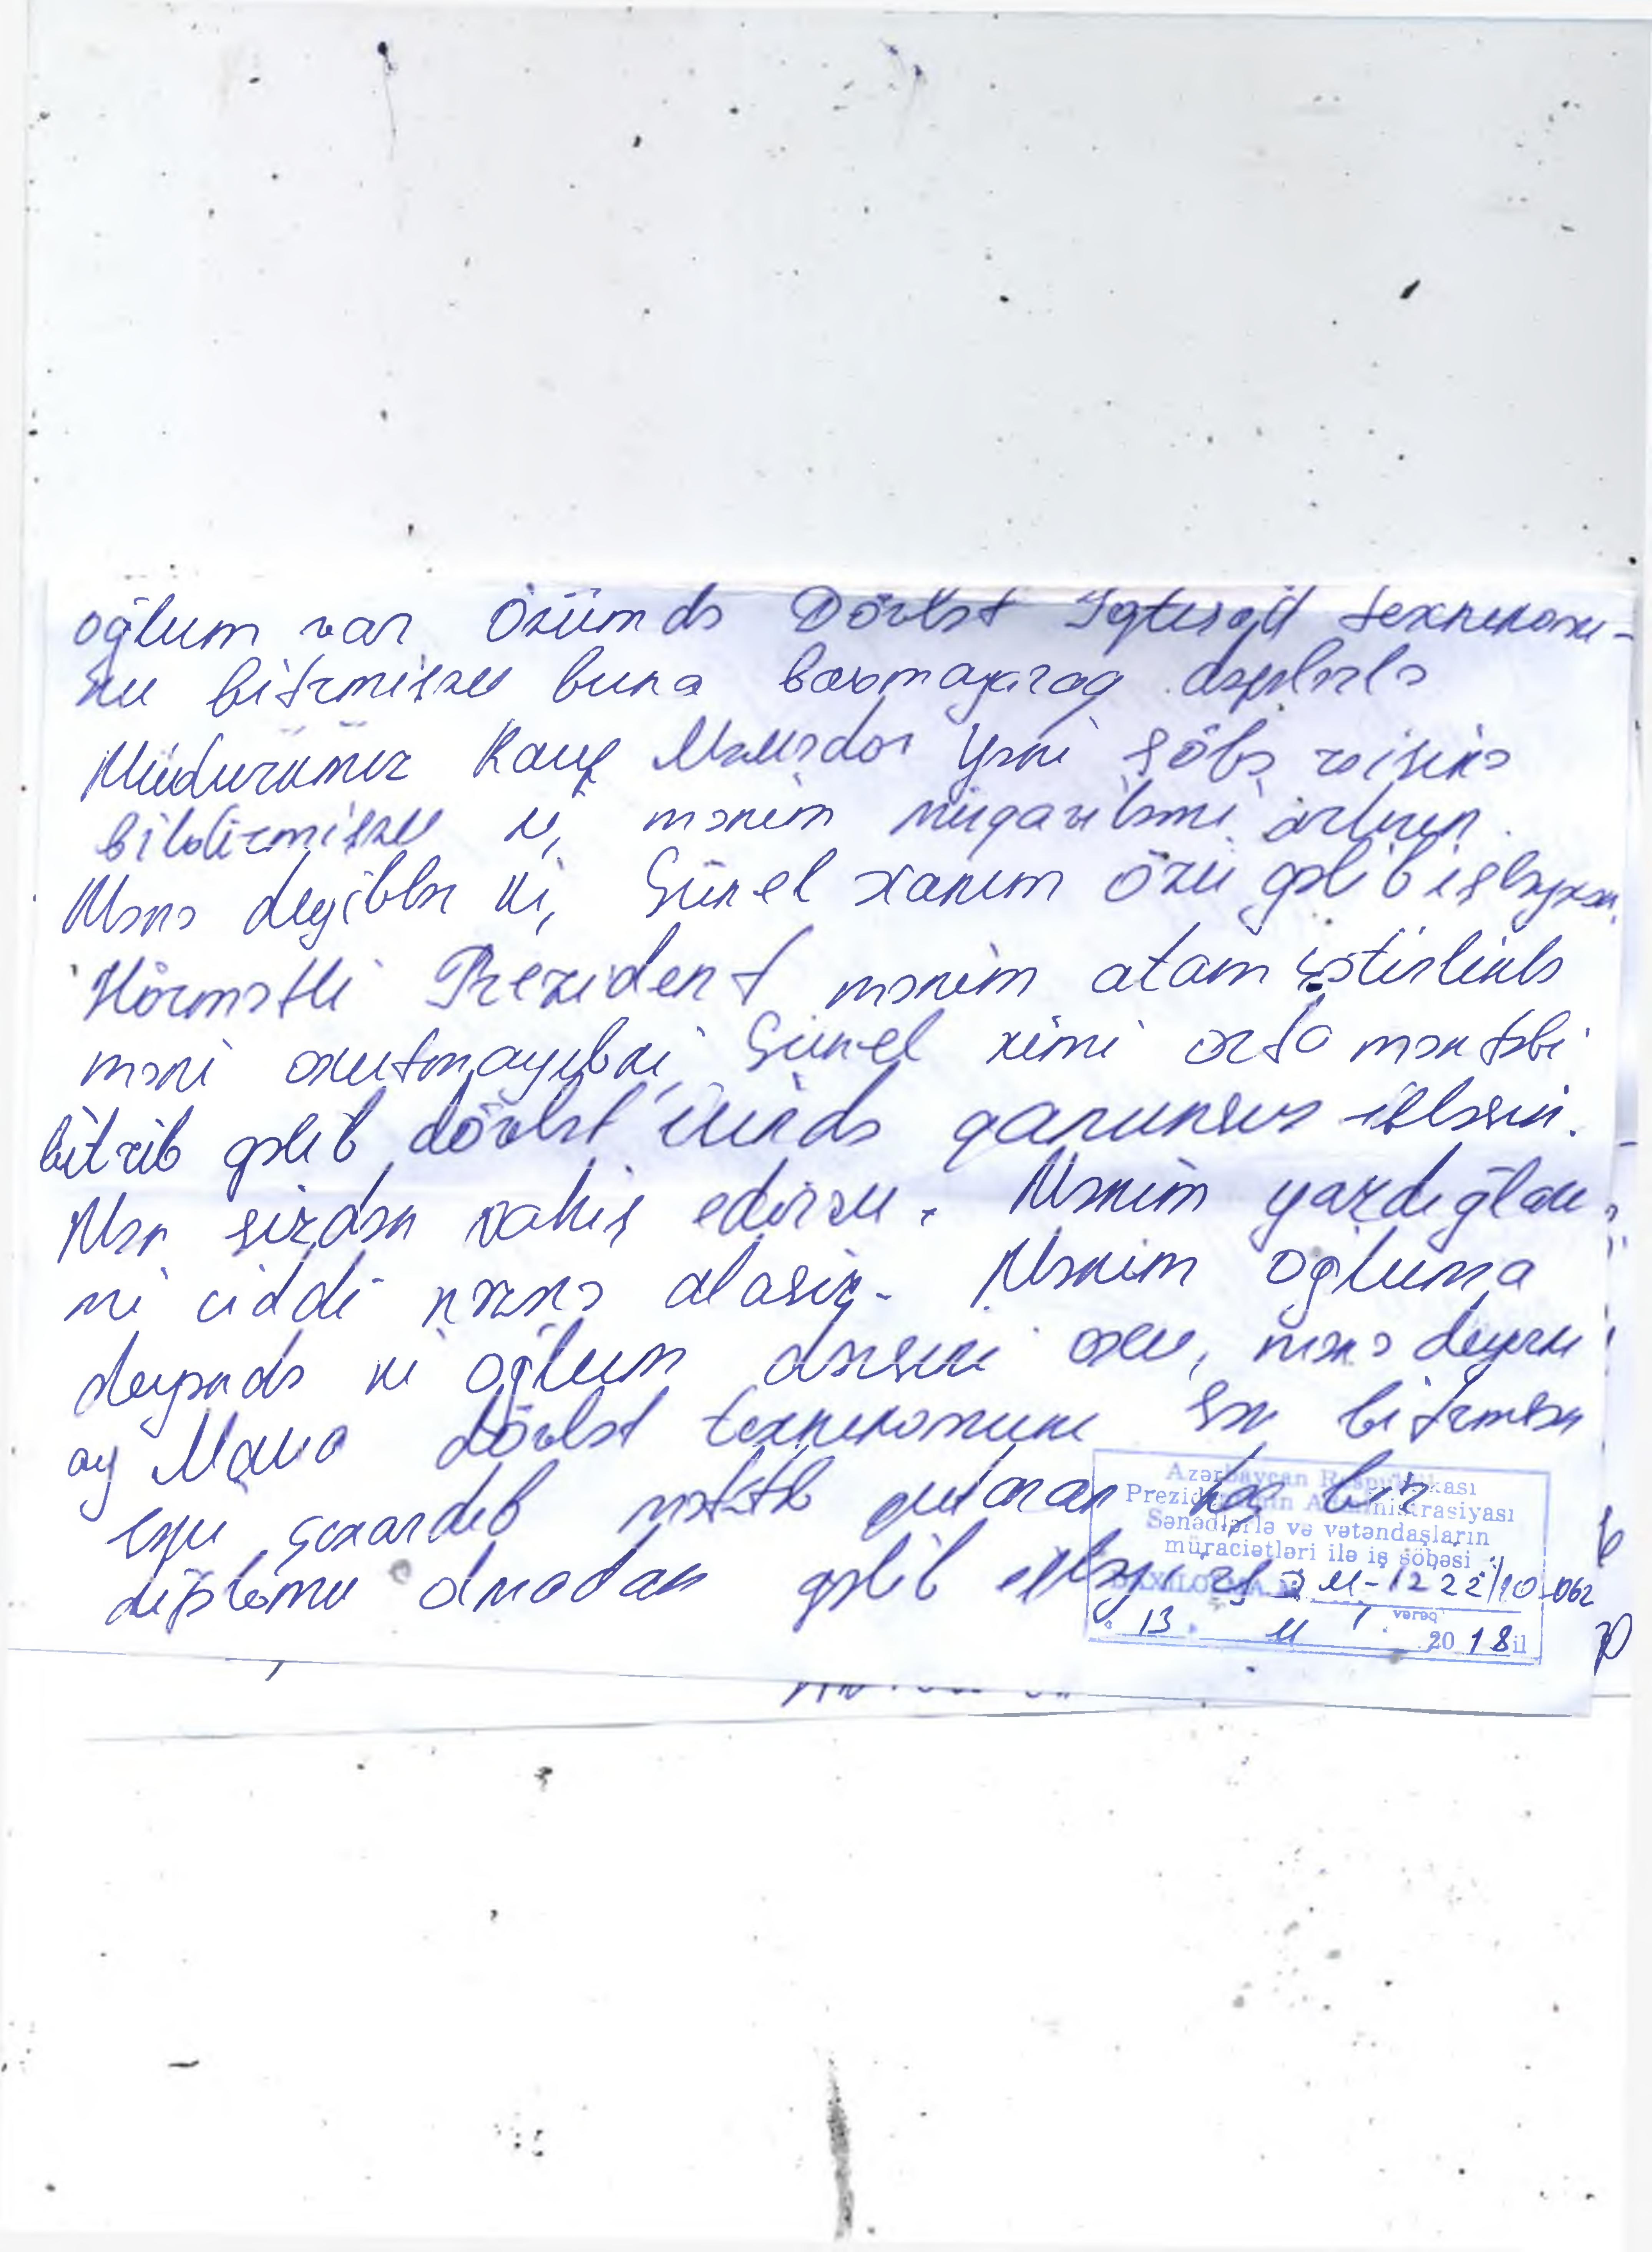 oğlum var. Özümdə Dövlət İqtisad texnikomu-
nu bitirmişəm buna baxmayaraq dəfələrlə
Müdürümüz Rauf Məmmədov yəni şöbə rəisinə
bildirmişəm ki, mənim müqaviləmi artırın.
Mənə deyiblər ki, Günel xanım özü gəlib işləyəcək.
Hörmətli Prezident mənim atam çətinliklə
məni oxutmayıbki, Günel kimi orta məktəbi
bitirib gəlib dövlət işində qanunsuz işləsin.
Mən sizdən xahiş edirəm. Mənim yazdığları-
mı ciddi nəzərə alasız. Mənim oğluma
deyəndə ki oğlum dərsini oxu, mənə deyir ki
ay Mama dövlət texnikomunu sən bitirmisən
səni çıxardıb məktəb qutaran heç bir
diplomu olmadan gəlib işləyir
Azərbaycan Respublikası
Prezidentinin Administrasiyası
Sənədlərlə və vətəndaşların
müraciətləri ilə iş şöbəsi
DAXİLOLMA № 3 M-1222/10-062
vərəq
13 11 2018 il